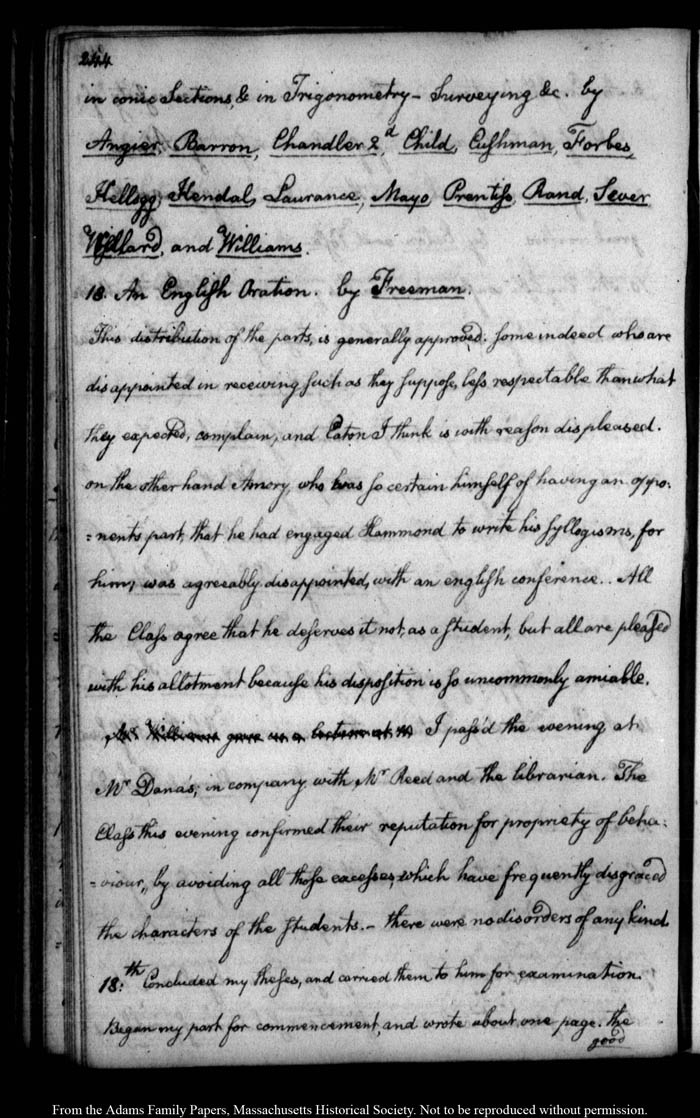 244
in conic Sections, & in Trigonometry - Surveying &c. by
Angier, Barron, Chandler 2d, Child, Cushman, Forbes,
Kellogg, Kendal, Laurance, Mayo, Prentiss, Rand, Sever
Willard, and Williams.
18. An English Oration. by Freeman.
This distribution of the parts, is generally approved. some indeed who are
disappointed in receiving such as they suppose, less respectable than what
they expected, complain, and Eaton I think is with reason displeased.
on the other hand Amory, who was so certain himself of having an oppo:
=nents part, that he had engaged Hammond to write his syllogisms, for
him, was agreeably disappointed, with an english conference.. All
the Class agree that he deserves it not, as a student, but all are pleased
with his allotment because his disposition is so uncommonly amiable.
Mr Williams gave us a lecture at I pass'd the evening at
Mr Dana's, in company with Mr Reed and the librarian. The
Class this evening confirmed their reputation for propriety of beha:
=viour, by avoiding all those excesses, which have frequently disgraced
the characters of the students. - there were no disorders of any kind.
18.th Concluded my theses, and carried them to him for examination.
Began my part for commencement, and wrote about one page. The
good
From the Adams Family Papers, Massachusetts Historical Society. Not to be reproduced without permission.